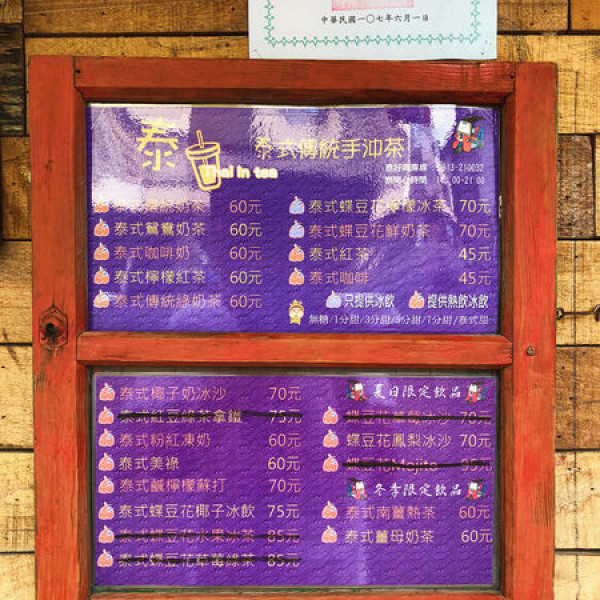 中華民國一〇七年六月一日
泰
泰式傳統手沖茶
Thai in tea
泰式傳統奶茶 60元
泰式鴛鴦奶茶 60元
泰式咖啡奶 60元
泰式檸檬紅茶 60元
泰式傳統綠奶茶 60元
泰式蝶豆花檸檬冰茶 70元
泰式蝶豆花鮮奶茶 70元
泰式紅茶 45元
泰式咖啡 45元
只提供冰飲 提供熱飲冰飲
無糖/1分甜/3分甜/5分甜/7分甜/泰式甜
泰式椰子奶冰沙 70元
泰式紅豆綠茶拿鐵 75元
泰式粉紅凍奶 60元
泰式美祿 60元
泰式鹹檸檬蘇打 70元
泰式蝶豆花椰子冰飲 75元
泰式蝶豆花水果冰茶 85元
泰式蝶豆花草莓綠茶 85元
夏日限定飲品
蝶豆花草莓冰沙 70元
蝶豆花鳳梨冰沙 70元
蝶豆花Mojito 95元
冬季限定飲品
泰式南薑熱茶 60元
泰式薑母奶茶 60元